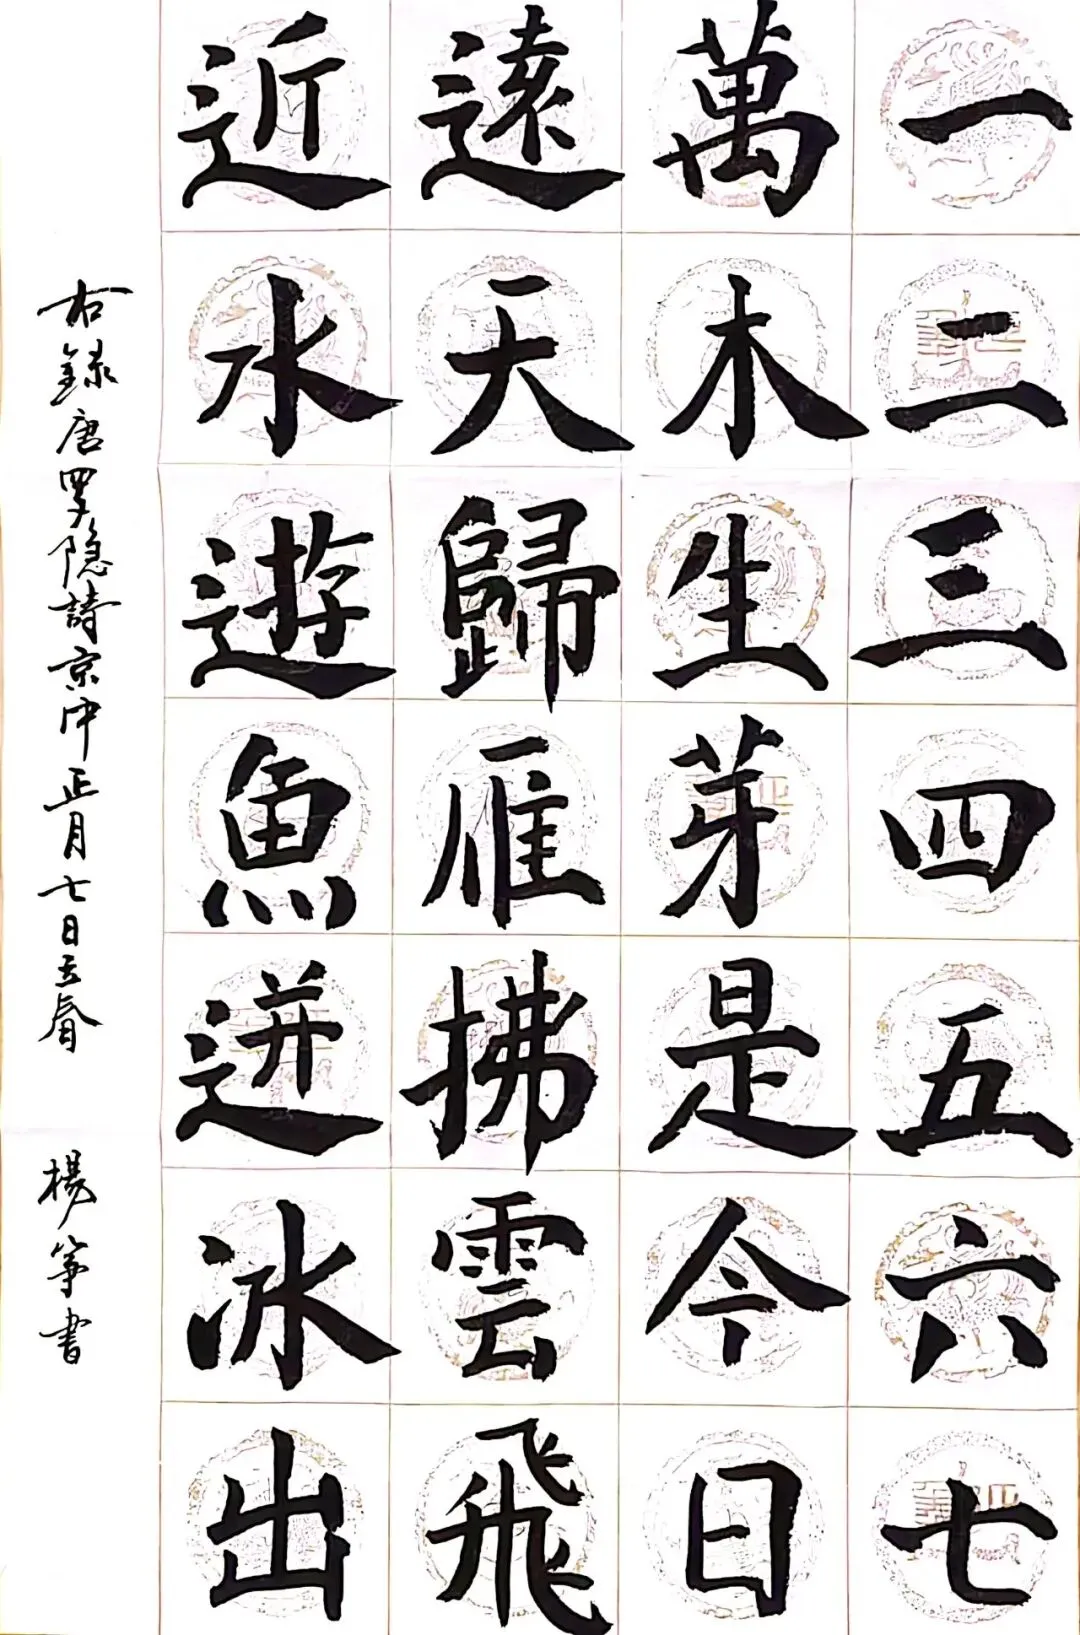 一二三四五六七
萬木生芽是今日
遠天歸雁拂雲飛
近水遊魚迸冰出
右錄唐羅隐詩京中正月七日立春
楊箏書